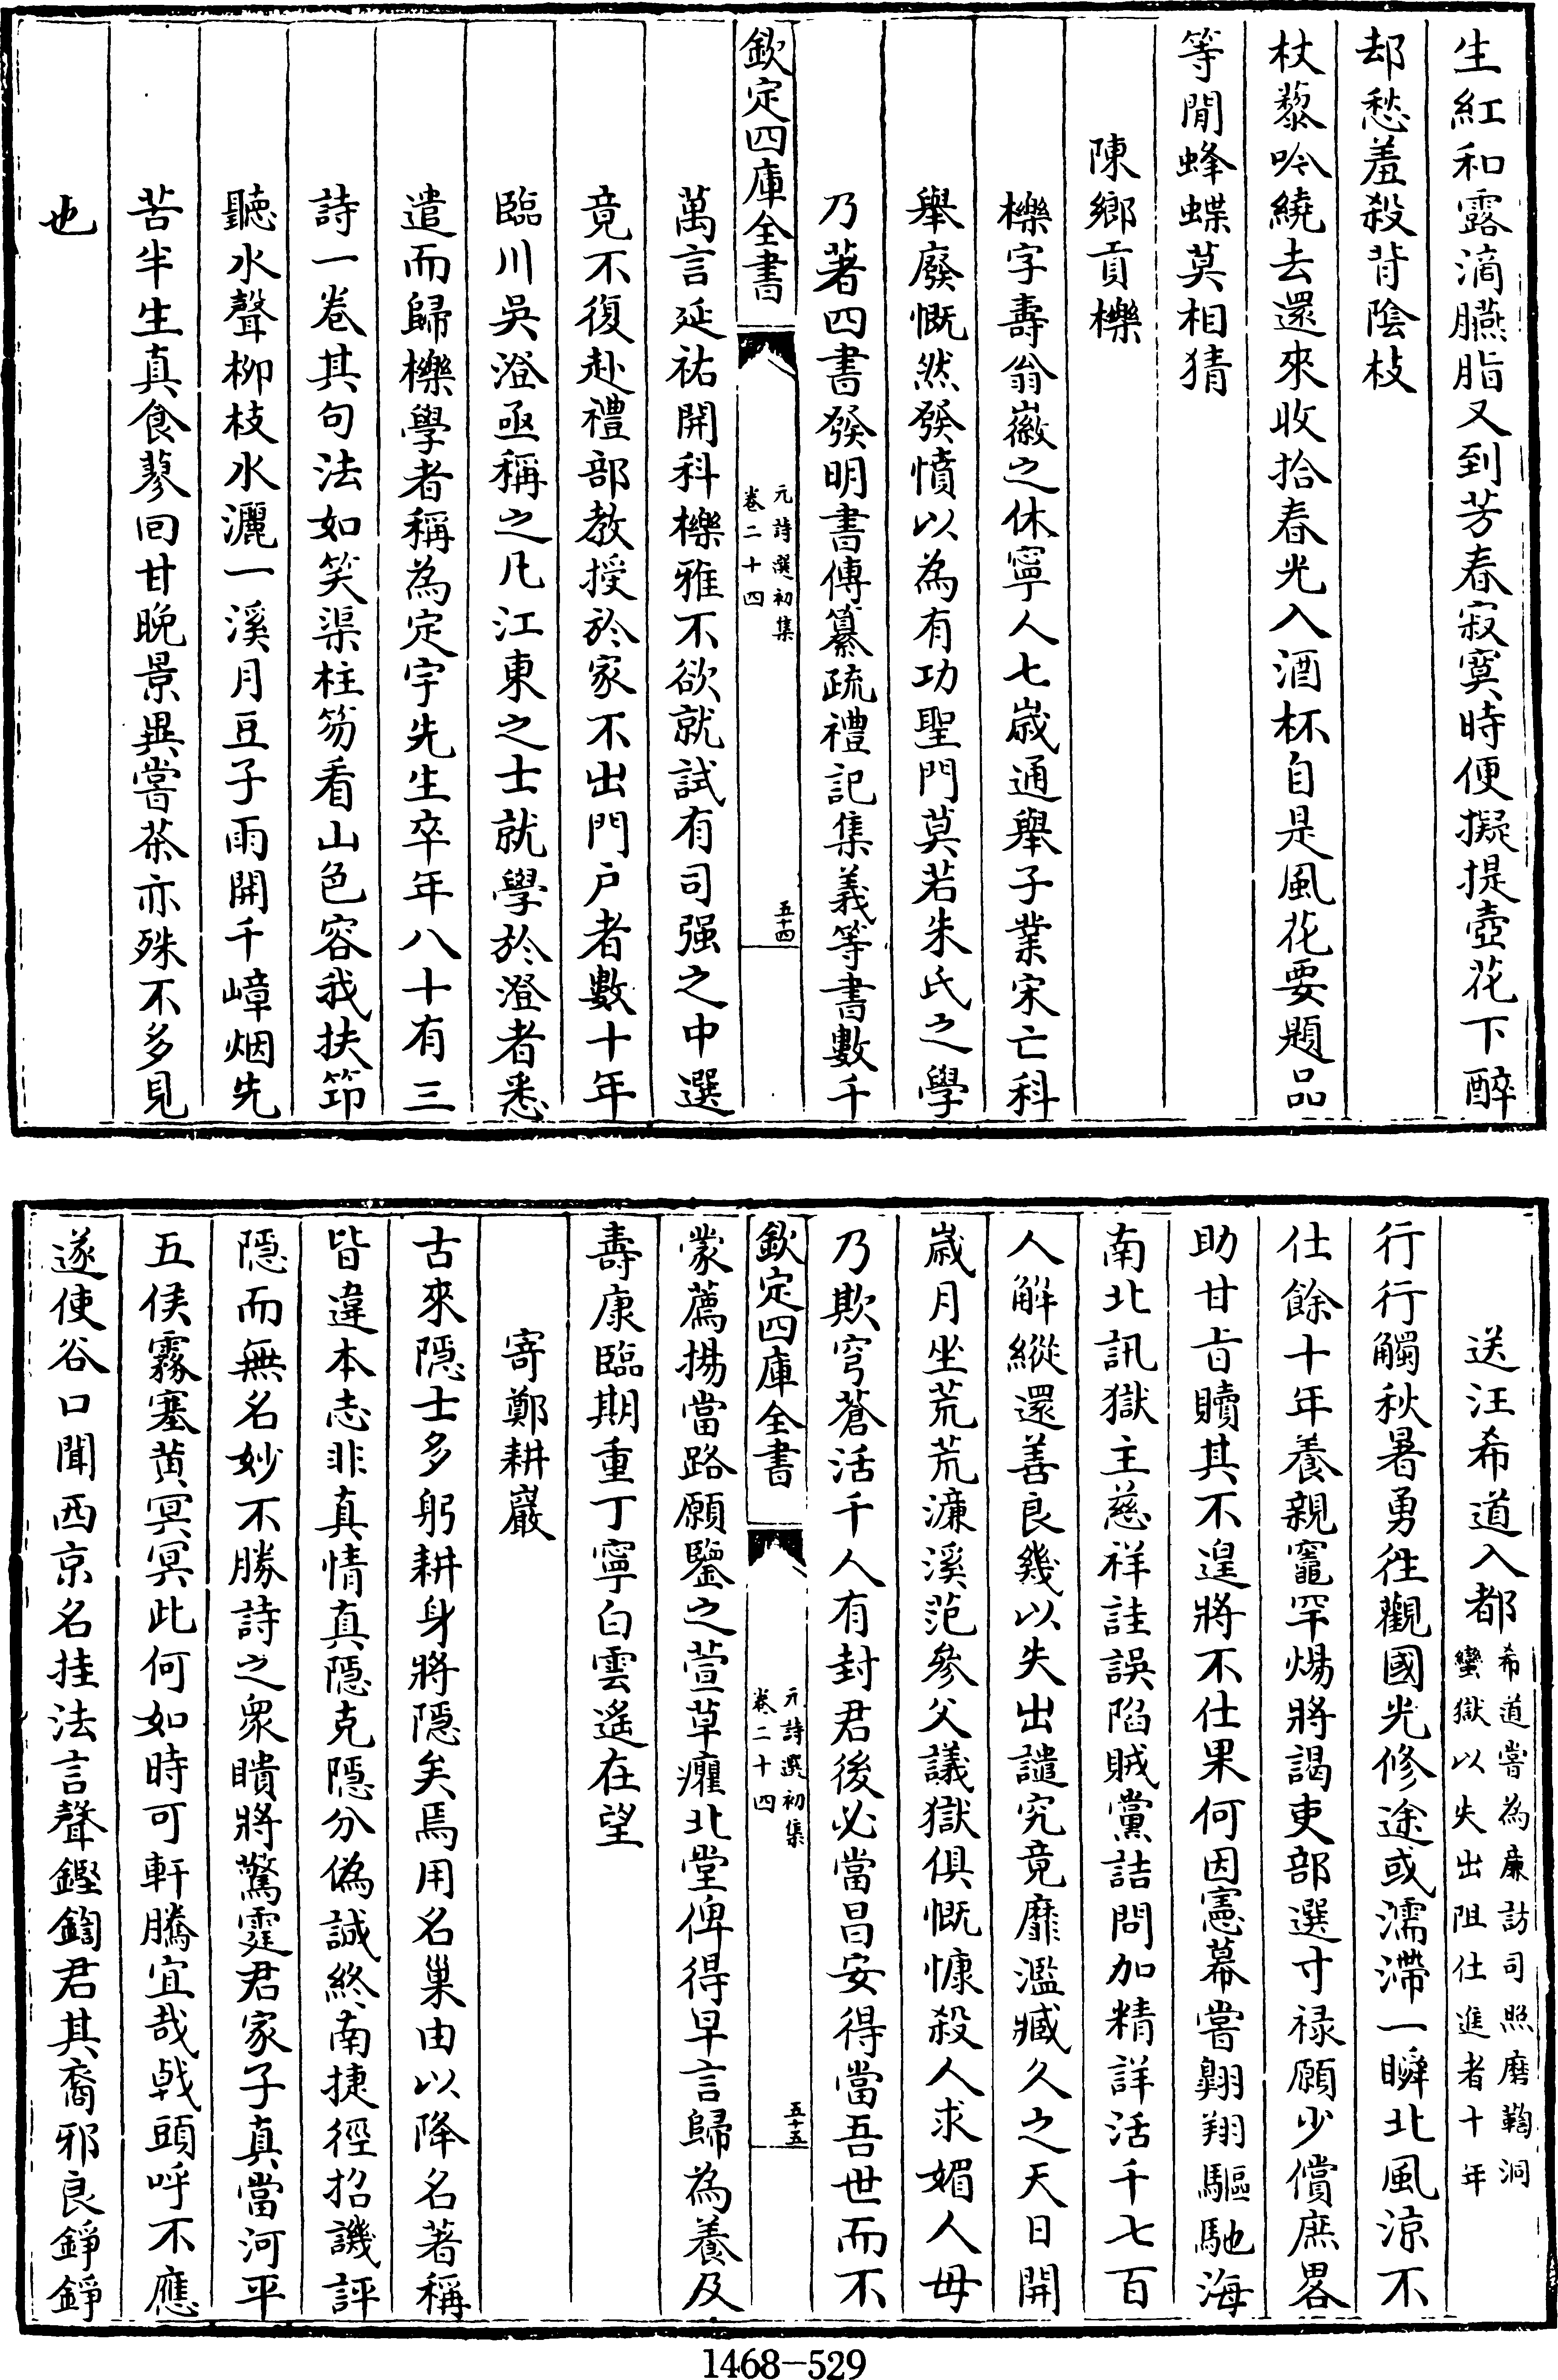 生紅和露滴臙脂又到芳春寂寞時便擬提壺花下醉
却愁羞殺背陰枝
杖藜吟繞去還來收拾春光入酒杯自是風花要題品
等閒蜂蝶莫相猜
陳鄉貢櫟
櫟字壽翁徽之休寧人七歳通舉子業宋亡科
舉廢慨然發憤以為有功聖門莫若朱氏之學
乃著四書發明書傳纂疏禮記集義等書數千
欽定四庫全書
元詩選初集
卷二十四
五十四
萬言延祐開科櫟雅不欲就試有司强之中選
竟不復赴禮部教授於家不出門户者數十年
臨川吳澄亟稱之凡江東之士就學於澄者悉
遣而歸櫟學者稱為定宇先生卒年八十有三
詩一卷其句法如笑渠柱笏看山色容我扶笻
聽水聲柳枝水灑一溪月豆子雨開千嶂烟先
苦半生真食蓼回甘晚景異嘗茶亦殊不多見
也
送汪希道入都
希道嘗為廉訪司照磨鞫洞
蠻獄以失出阻仕進者十年
行行觸秋暑勇往觀國光修途或濡滯一瞬北風涼不
仕餘十年養親竈罕煬將謁吏部選寸禄願少償庶畧
助甘旨贖其不遑將不仕果何因憲幕嘗翺翔驅馳海
南北訊獄主慈祥詿誤陷賊黨詰問加精詳活千七百
人解縱還善良幾以失出譴究竟靡濫臧久之天日開
歳月坐荒荒濂溪范參父議獄俱慨慷殺人求媚人毋
乃欺穹蒼活千人有封君後必當昌安得當吾世而不
欽定四庫全書
元詩選初集
卷二十四
五十五
蒙薦揚當路願鑒之萱草癯北堂俾得早言歸為養及
壽康臨期重丁寧白雲遥在望
寄鄭耕巖
古來隠士多躬耕身將隠矣焉用名巢由以降名著稱
皆違本志非真情真隠克隠分偽誠終南捷徑招譏評
隠而無名妙不勝詩之衆瞶將驚霆君家子真當河平
五侯霧塞黄冥冥此何如時可軒騰宜哉戟頭呼不應
遂使谷口聞西京名挂法言聲鏗鍧君其裔邪良錚錚
1468-529